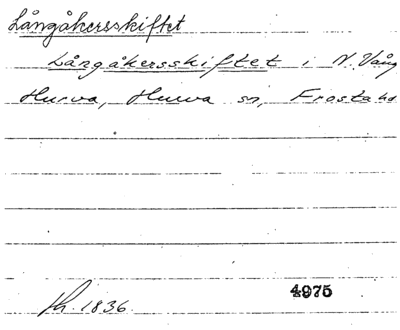 Långåkersskiftet
Långåkersskiftet i N. Vång
Hurva, Hurva sn, Frosta hd
4975
h. 1836.